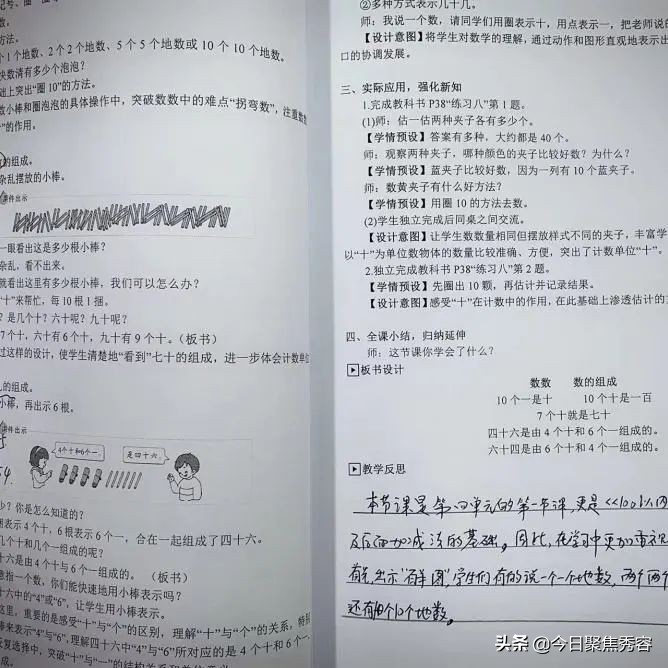 记号、圈一圈
数。
方法。
个1个地数、2个2个地数、5个5个地数或10个10个地数。
快数清有多少个泡泡？
础上突出“圈10”的方法。
数小棒和圈泡泡的具体操作中，突破数数中的难点“拐弯数”，注重数
”的作用。
的组成。
杂乱摆放的小棒。
课件出示
一眼看出这是多少根小棒？
杂乱，看不出来。
就看出这里有多少根小棒，我们可以怎么办？
“十”来帮忙，每10根1捆。
？是几个十？六十呢？九十呢？
7个十，六十有6个十，九十有9个十。（板书）
过这样的设计，使学生清楚地“看到”七十的组成，进一步体会计数单位
的组成。
小棒，再出示6根。
课件出示
4个十和6个一。
是四十六。
少？你是怎么知道的？
捆表示4个十，6根表示6个一，合在一起组成了四十六。
几个十和几个一组成的呢？
十六是由4个十与6个一组成的。（板书）
意指一个数，你们能快速地用小棒表示吗？
十六中的“4”或“6”，让学生用小棒表示。
这里，重要的是感受“十”与“个”的区别，理解“十”与“个”的关系，特别
棒来表示“4”与“6”，理解四十六中“4”与“6”所对应的是4个十和6个一，
反复选择中，突破“十”与“一”的
②多种方式表示几十几。
师：我说一个数，请同学们用圈表示十，用点表示一，把老师说的
【设计意图】将学生对数学的理解，通过动作和图形直观地表示出
口的协调发展。
三、实际应用，强化新知
1.完成教科书P38“练习八”第1题。
(1)师：估一估两种夹子各有多少个。
【学情预设】答案有多种，大约都是40个。
师：观察两种夹子，哪种颜色的夹子比较好数？为什么？
【学情预设】蓝夹子比较好数，因为一列有10个蓝夹子。
师：数黄夹子有什么好方法？
【学情预设】用圈10的方法去数。
(2)学生独立完成后同桌之间交流。
【设计意图】让学生数数量相同但摆放样式不同的夹子，丰富学
以“十”为单位数物体的数量比较准确、方便，突出了计数单位“十”。
2.独立完成教科书P38“练习八”第2题。
【学情预设】先圈出10颗，再估计并记录结果。
【设计意图】感受“十”在计数中的作用，在此基础上渗透估计的
四、全课小结，归纳延伸
师：这节课你学会了什么？
板书设计
数数 数的组成
10个一是十 10个十是一百
7个十就是七十
四十六是由4个十和6个一组成的。
六十四是由6个十和4个一组成的。
教学反思
本节课是第四单元的第一节课，更是《100以内
及后面加减法的基础。因此，在学习中更加重视
首先出示“百羊图”学生们有的说一个一个地数，两个两个
还有的10个10个地数。
头条 @今日聚焦秀容